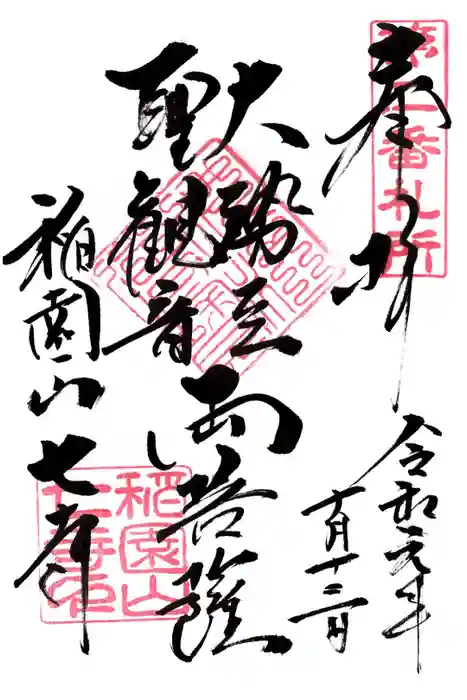 奉拝
第二番札所
令和元年
十一月十三日
大勢至
聖観音
両菩薩
稲園山七寺
稲園山